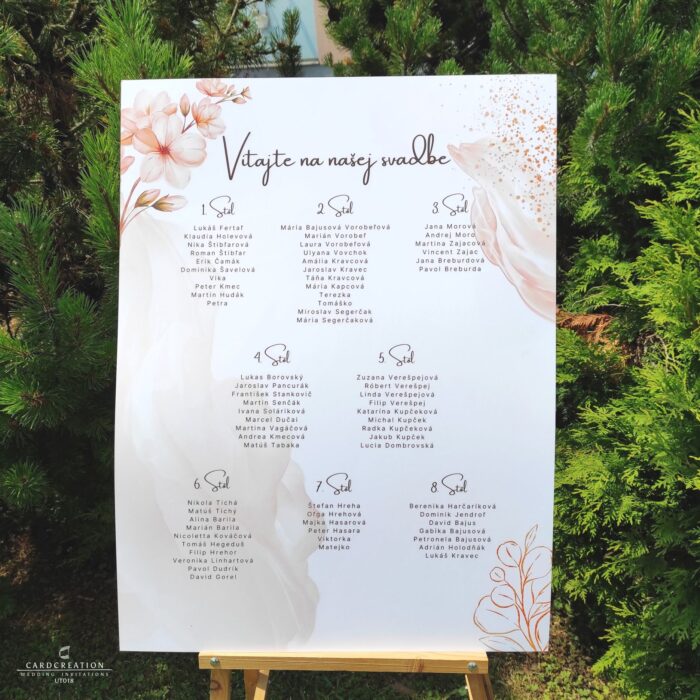 Vitajte na našej svadbe
1. Stôl
Lukáš Fertaľ
Klaudia Holevová
Nika Štibľarová
Roman Štibľar
Erik Čamák
Dominika Šavelová
Vika
Peter Kmec
Martin Hudák
Petra
2. Stôl
Mária Bajusová Vorobeľová
Marián Vorobeľ
Laura Vorobeľová
Ulyana Vovchok
Amália Kravcová
Jaroslav Kravec
Táňa Kravcová
Mária Kapcová
Terezka
Tomáško
Miroslav Segerčak
Mária Segerčaková
3. Stôl
Jana Morová
Andrej Moro
Martina Zajacová
Vincent Zajac
Jana Breburdová
Pavol Breburda
4. Stôl
Lukas Borovský
Jaroslav Pancurák
František Stankovič
Martin Senčák
Ivana Soláriková
Marcel Dučai
Martina Vagáčová
Andrea Kmecová
Matúš Tabaka
5. Stôl
Zuzana Verešpejová
Róbert Verešpej
Linda Verešpejová
Filip Verešpej
Katarína Kupčeková
Michal Kupček
Radka Kupčeková
Jakub Kupček
Lucia Dombrovská
6. Stôl
Nikola Tichá
Matúš Tichý
Alina Barila
Marián Barila
Nicoletta Kováčová
Tomáš Hegeduš
Filip Hrehor
Veronika Linhartová
Pavol Dudrik
David Gorel
7. Stôl
Štefan Hreha
Oľga Hrehová
Majka Hasarová
Peter Hasara
Viktorka
Matejko
8. Stôl
Berenika Harčaríková
Dominik Jendroľ
David Bajus
Gabika Bajusová
Petronela Bajusová
Adrián Holodňák
Lukáš Kravec
CARDCREATION
WEDDING INVITATIONS
UT018